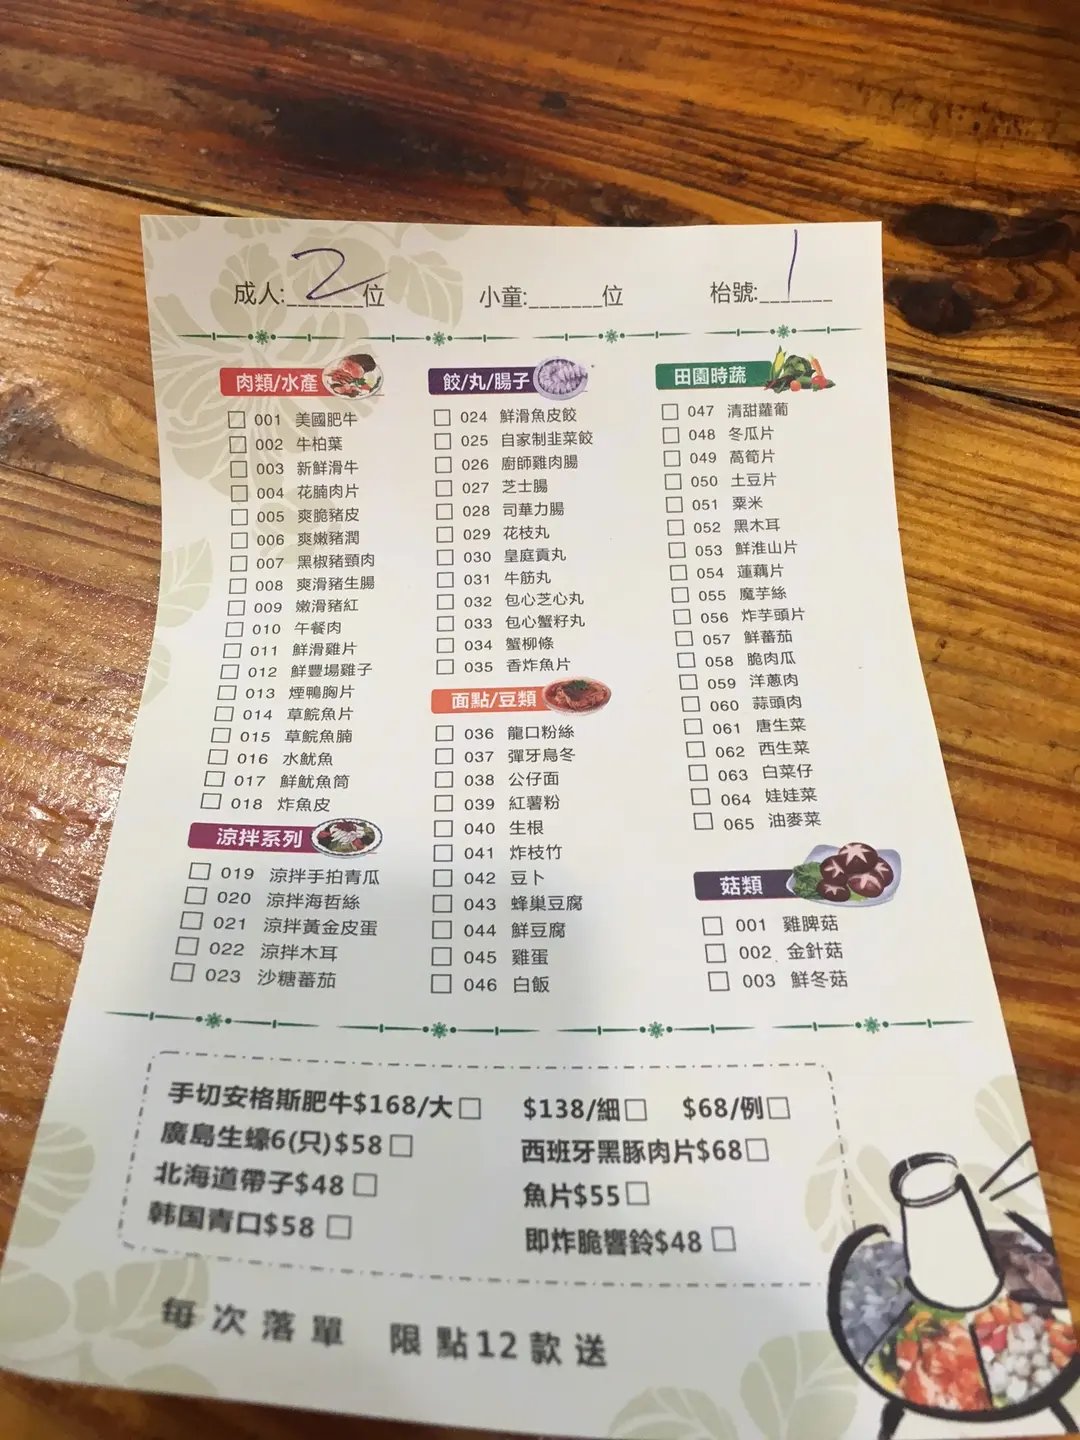 成人:_______位 2 小童:_______位 枱號:_______ 1
肉類/水產
001 美國肥牛
002 牛柏葉
003 新鮮滑牛
004 花腩肉片
005 爽脆豬皮
006 爽嫩豬潤
007 黑椒豬頸肉
008 爽滑豬生腸
009 嫩滑豬紅
010 午餐肉
011 鮮滑雞片
012 鮮豐場雞子
013 煙鴨胸片
014 草鯇魚片
015 草鯇魚腩
016 水魷魚
017 鮮魷魚筒
018 炸魚皮
涼拌系列
019 涼拌手拍青瓜
020 涼拌海哲絲
021 涼拌黃金皮蛋
022 涼拌木耳
023 沙糖蕃茄
餃/丸/腸子
024 鮮滑魚皮餃
025 自家制韭菜餃
026 廚師雞肉腸
027 芝士腸
028 司華力腸
029 花枝丸
030 皇庭貢丸
031 牛筋丸
032 包心芝心丸
033 包心蟹籽丸
034 蟹柳條
035 香炸魚片
面點/豆類
036 龍口粉絲
037 彈牙烏冬
038 公仔面
039 紅薯粉
040 生根
041 炸枝竹
042 豆卜
043 蜂巢豆腐
044 鮮豆腐
045 雞蛋
046 白飯
田園時蔬
047 清甜蘿蔔
048 冬瓜片
049 萵筍片
050 土豆片
051 粟米
052 黑木耳
053 鮮淮山片
054 蓮藕片
055 魔芋絲
056 炸芋頭片
057 鮮蕃茄
058 脆肉瓜
059 洋蔥肉
060 蒜頭肉
061 唐生菜
062 西生菜
063 白菜仔
064 娃娃菜
065 油麥菜
菇類
001 雞脾菇
002 金針菇
003 鮮冬菇
手切安格斯肥牛$168/大 $138/細 $68/例
廣島生蠔6(只)$58 西班牙黑豚肉片$68
北海道帶子$48 魚片$55
韩国青口$58 即炸脆響鈴$48
每次落單 限點12款送